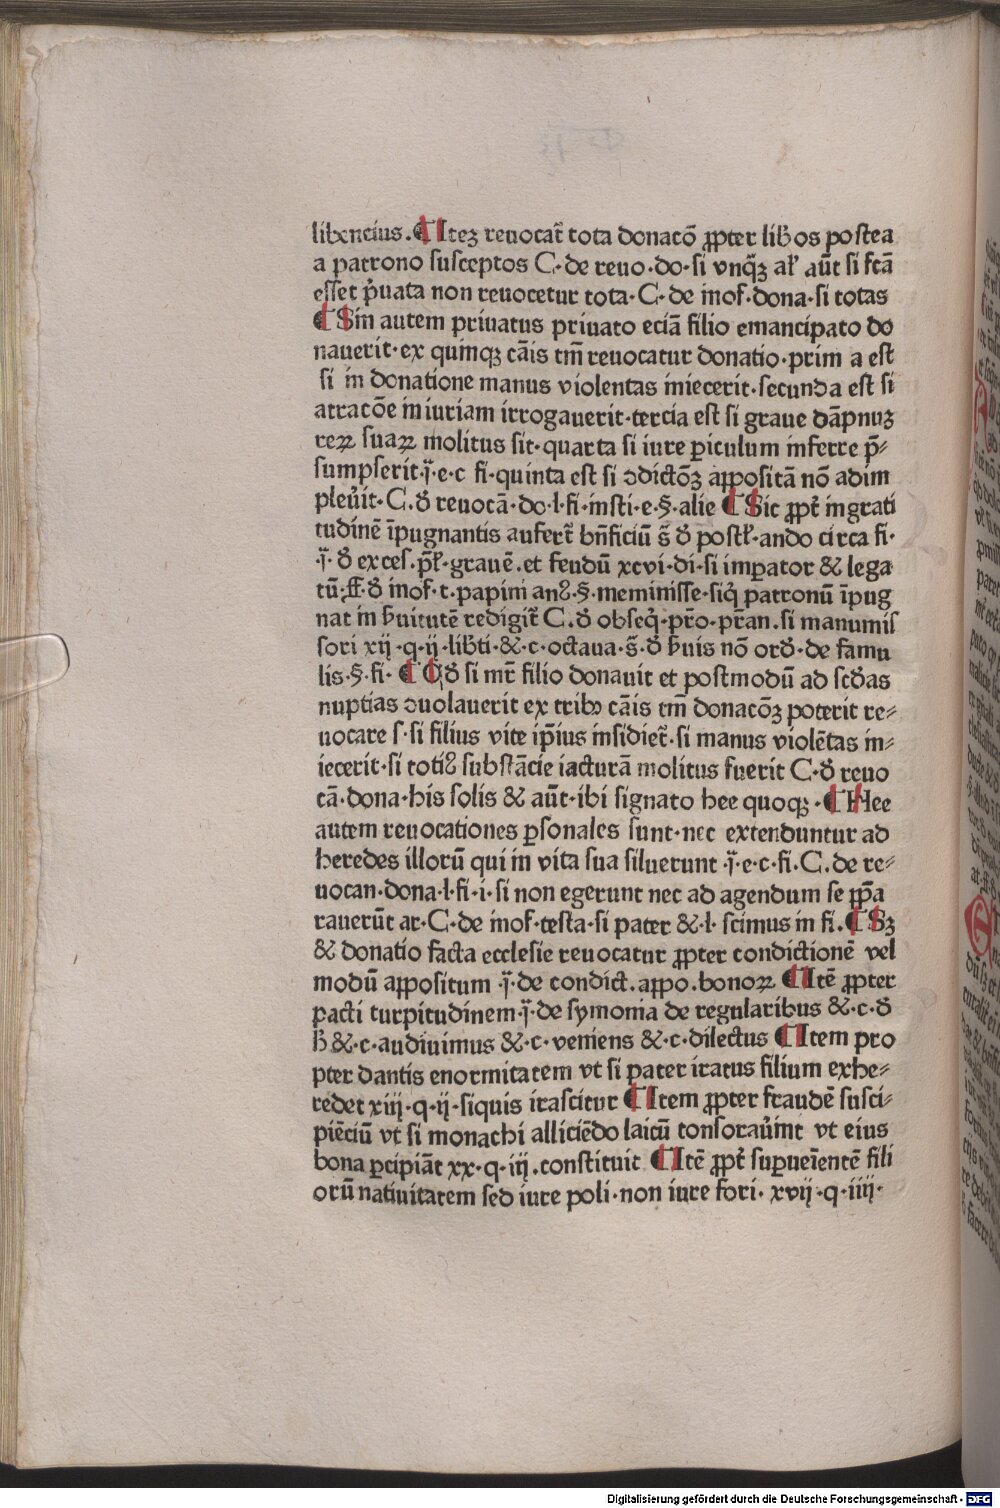 libencius. ¶ Itez reuocat̄ tota donacō ꝓpter libos postea
a patrono susceptos C· de reuo·do·si vnq̃ꝫ aƚ aūt si fcā
esset p̄uata non reuocetur tota· C· de inof·dona·si totas
¶ Sin autem priuatus priuato eciā filio emancipato do
nauerit·ex quinqꝫ cāis tm̄ reuocatur donatio·prim a est
si in donatione manus violentas iniecerit·secunda est si
atracōe iniuriam irrogauerit·tercia est si graue dāpnuꝫ
reꝝ suaꝝ molitus sit·quarta si iure ꝑiculum inferre p̄-
sumpserit·i̇̄·e·c fi·quinta est si ↄdictōꝫ apositā nō adim
pleu̓it·C·ꝺ̄ reuocā·do·l·fi·insti·e·§·alie ¶ Sic ꝓpt̄ ingrati
tudinē īpugnantis aufert̄ bn̄ficiū s̄ ꝺ̄ postƚ·ando circa fi·
·i̇̄· ꝺ̄ exces·p̄ƚ·grauē·et feudū xcvi·di·si imꝑator & lega
tū·ff·ꝺ̄ inof·t·papini anꝰ·§·meminisse·siq̇ patronū īpug
nat in ẜuitutē redigit̄ C·ꝺ̄ obseq̇·pr̄o·pr̄an·si manumis
sori xij·q·ij·lib̄ti·&·c·octaua·s̄·ꝺ̄ ẜuis nō orꝺ̄·de famu
lis·§·fi· ¶ Qꝺ̄ si mr̄ filio donauit et postmodū ad scꝺ̄as
nuptias ↄuolauerit ex tribꝰ cāis tm̄ donacōꝫ poterit re-
uocare s·si filius vite ip̄ius insidiet̄·si manus violētas in-
iecerit·si totiꝰ substācie iacturā molitus fuerit C·ꝺ̄ reuo
cā·dona·his solis & aūt·ibi signato hee quoqꝫ· ¶ Hee
autem reuocationes ꝑsonales sunt·nec extenduntur ad
heredes illorū qui in vita sua siluerunt ·i̇̄·e·c·fi·C·de re-
uocan·dona·l·fi·i·si non egerunt nec ad agendum se p̄pa
rauerūt ar·C·de inof·testa·si pater &·l· scimus in fi. ¶ Sꝫ
& donatio facta ecclesie reuocatur ꝓpter condictionē vel
modū apositum ·i̇̄·de condict·apo·bonoꝝ ¶ Itē ꝓpter
pacti turpitudinem·i̇̄·de symonia de regularibus &·c·ꝺ̄
ħ &·c·audiuimus &·c·veniens &·c·dilectus ¶ Item pro
pter dantis enormitatem vt si pater iratus filium exhe-
redet xiij·q·ij·siquis irascitur ¶ Item ꝓpter fraudē susci-
piēciū vt si monachi alliciēdo laicū tonsorau̓int vt eius
bona ꝑcipiāt xx·q·iij·constituit ¶ Itē ꝓpt̄ suꝑueīentē fili
orū natiuitatem sed iure poli·non iure fori· xvij·q·iiij·
Digitalisierung gefördert durch die Deutsche Forschungsgemeinschaft - DFG